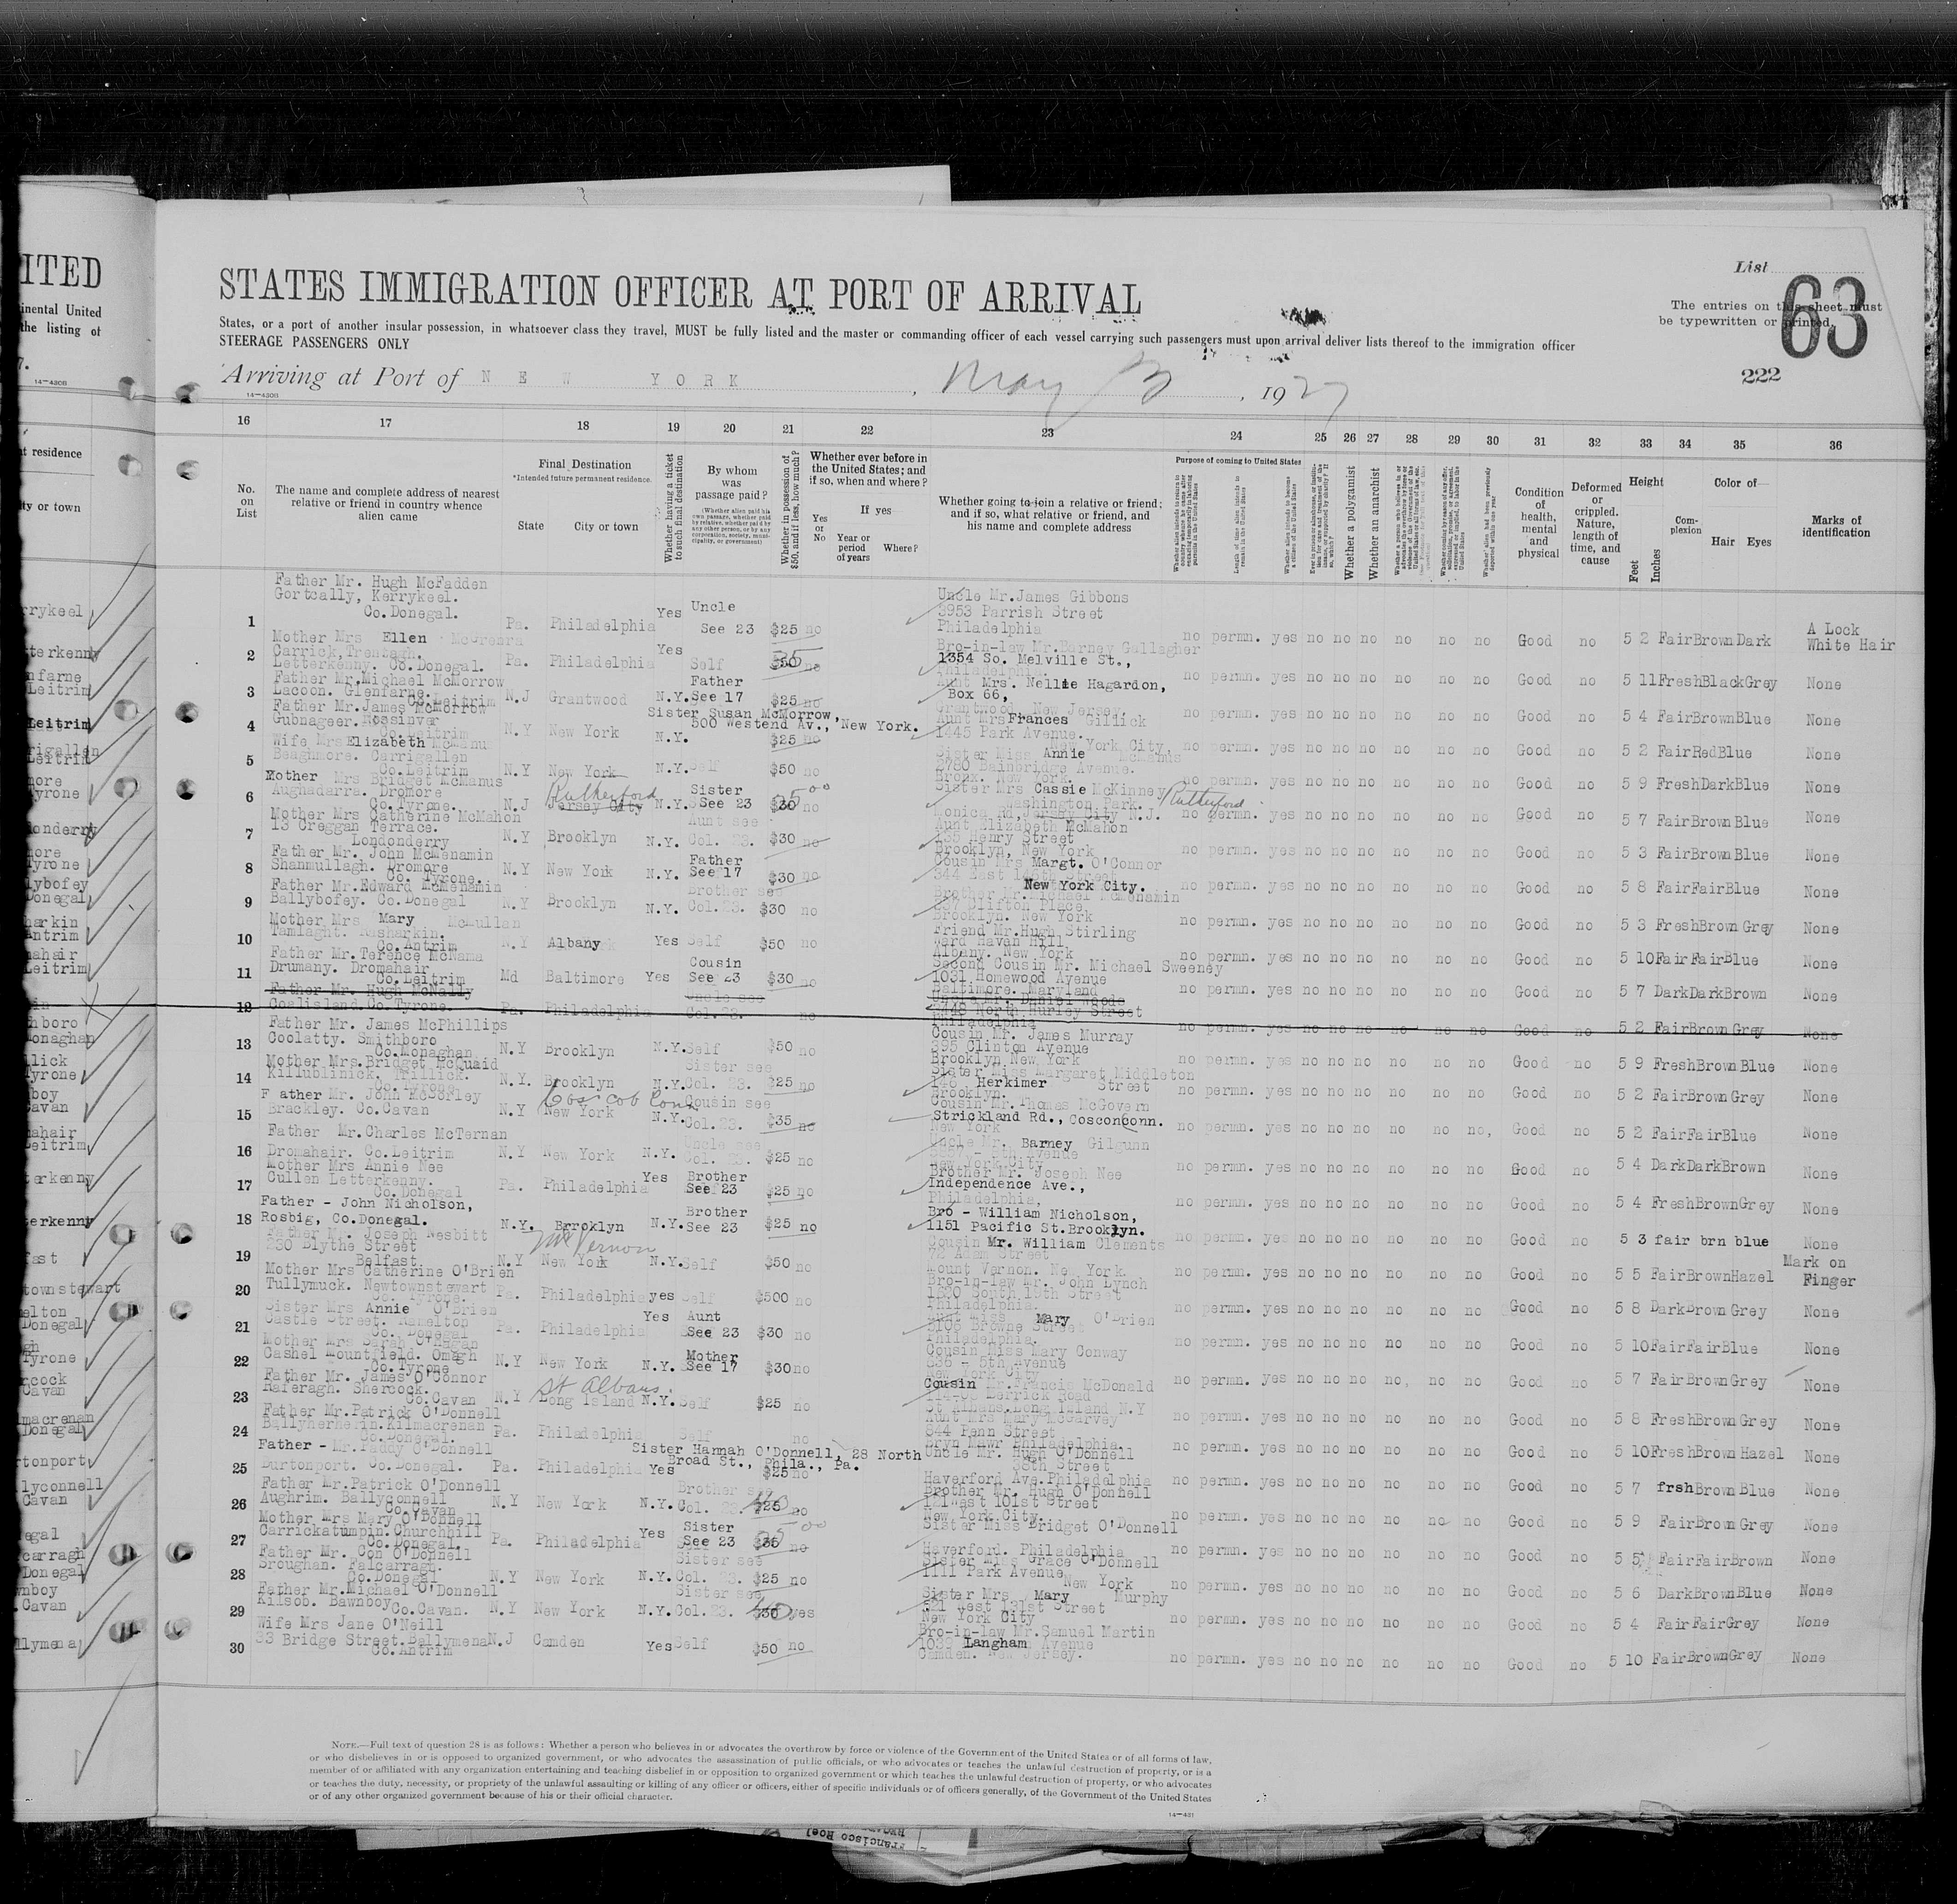 ITED
inental United
the listing of
7.
14—430B
STATES IMMIGRATION OFFICER AT PORT OF ARRIVAL
List
63
The entries on this sheet must
be typewritten or printed.
222
States, or a port of another insular possession, in whatsoever class they travel, MUST be fully listed and the master or commanding officer of each vessel carrying such passengers must upon arrival deliver lists thereof to the immigration officer
STEERAGE PASSENGERS ONLY
Arriving at Port of NEW YORK, May, 1927
14—430B
16 17 18 19 20 21 22 23 24 25 26 27 28 29 30 31 32 33 34 35 36
No. on List
The name and complete address of nearest relative or friend in country whence alien came
Final Destination
*Intended future permanent residence.
State City or town
Whether having a ticket to such final destination
By whom was passage paid?
Whether in possession of $50, and if less, how much?
Whether ever before in the United States; and if so, when and where?
Yes or No
If yes—
Year or period of years
Where?
Whether going to join a relative or friend; and if so, what relative or friend, and his name and complete address
Purpose of coming to United States
Whether a polygamist
Whether an anarchist
Condition of health, mental and physical
Deformed or crippled. Nature, length of time, and cause
Height
Feet Inches
Complexion
Color of—
Hair Eyes
Marks of identification
1 Father Mr. Hugh McFadden
Gortcally, Kerrykeel.
Co.Donegal. Pa. Philadelphia Yes Uncle See 23 $25 no
Uncle Mr.James Gibbons
3953 Parrish Street
Philadelphia
no permn. yes no no no no no no Good no 5 2 Fair Brown Dark A Lock White Hair
2 Mother Mrs Ellen McGrenra
Carrick, Trentagh.
Letterkenny. Co.Donegal. Pa. Philadelphia Yes Self no
Bro-in-law Mr.Barney Gallagher
1354 So. Melville St.,
Philadelphia.
no permn. yes no no no no no no Good no 5 11 Fresh Black Grey None
3 Father Mr.Michael McMorrow
Lacoon. Glenfarne.
Co.Leitrim N.J Grantwood N.Y. Father See 17 $25 no
Aunt Mrs. Nellie Hagardon,
Box 66,
Grantwood, New Jersey.
no permn. yes no no no no no no Good no 5 4 Fair Brown Blue None
4 Father Mr.James McMorrow
Gubnageer. Rossinver
Co.Leitrim N.Y New York N.Y. Sister Susan McMorrow,
500 Westend Av., New York. $25 no
Aunt Mrs Frances Gillick
1445 Park Avenue.
New York City.
no permn. yes no no no no no no Good no 5 2 Fair Red Blue None
5 Wife Mrs Elizabeth McManus
Beaghmore. Carrigallen
Co.Leitrim N.Y New York N.Y. Self $50 no
Sister Miss Annie McManus
2780 Bainbridge Avenue.
Bronx. New York.
no permn. yes no no no no no no Good no 5 9 Fresh Dark Blue None
6 Mother Mrs Bridget McManus
Aughadarra. Dromore
Co.Tyrone. N.J Jersey City Rutherford N.Y. Sister See 23 no
Sister Mrs Cassie McKinney
Washington Park. Rutherford
Monica Rd, Jersey City N.J.
no permn. yes no no no no no no Good no 5 7 Fair Brown Blue None
7 Mother Mrs Catherine McMahon
13 Creggan Terrace.
Londonderry N.Y Brooklyn N.Y. Aunt see Col. 23. $30 no
Aunt Elizabeth McMahon
Henry Street
Brooklyn, New York
no permn. yes no no no no no no Good no 5 3 Fair Brown Blue None
8 Father Mr. John McMenamin
Shanmullagh. Dromore
Co. Tyrone. N.Y New York N.Y. Father See 17 $30 no
Cousin Mrs Margt. O'Connor
New York City.
no permn. yes no no no no no no Good no 5 8 Fair Fair Blue None
9 Father Mr.Edward McMenamin
Ballybofey. Co.Donegal N.Y Brooklyn N.Y. Brother see Col.23. $30 no
Brother Mr.Michael McMenamin
Clifton Place.
Brooklyn. New York
no permn. yes no no no no no no Good no 5 3 Fresh Brown Grey None
10 Mother Mrs Mary McMullan
Tamlaght. Rasharkin.
Co.Antrim N.Y Albany Yes Self $50 no
Friend Mr.Hugh Stirling
Ward Havan Hill
Albany. New York
no permn. yes no no no no no no Good no 5 10 Fair Fair Blue None
11 Father Mr.Terence McNama
Drumany. Dromahair
Co.Leitrim Md Baltimore Yes Cousin See 23 $30 no
Second Cousin Mr. Michael Sweeney
1031 Homewood Avenue
Baltimore. Maryland
no permn. yes no no no no no no Good no 5 7 Dark Dark Brown None
12 Father Mr. Hugh McNally
Coalisland Co.Tyrone. Pa. Philadelphia Uncle see Col. 23. no
Uncle Mr. Daniel Woods
2448 North Hurley Street
Philadelphia
no permn. yes no no no no no no Good no 5 2 Fair Brown Grey None
13 Father Mr. James McPhillips
Coolatty. Smithboro
Co.Monaghan N.Y Brooklyn N.Y. Self $50 no
Cousin Mr. James Murray
395 Clinton Avenue
Brooklyn New York
no permn. yes no no no no no no Good no 5 9 Fresh Brown Blue None
14 Mother Mrs.Bridget McQuaid
Killublinick. Trillick.
Co.Tyrone N.Y. Brooklyn N.Y. Sister see Col. 23. $25 no
Sister Miss Margaret Middleton
146 Herkimer Street
Brooklyn.
no permn. yes no no no no no no Good no 5 2 Fair Brown Grey None
15 Father Mr. John McSorley
Brackley. Co.Cavan N.Y New York Cos cob Conn N.Y. Cousin see Col.23. $35 no
Cousin Mr.Thomas McGovern
Strickland Rd., Coscon Conn.
New York
no permn. yes no no no no no no, Good no 5 2 Fair Fair Blue None
16 Father Mr.Charles McTernan
Dromahair. Co.Leitrim N.Y New York N.Y. Uncle see Col. 23. $25 no
Uncle Mr. Barney Gilgunn
5th Avenue
New York City
no permn. yes no no no no no no Good no 5 4 Dark Dark Brown None
17 Mother Mrs Annie Nee
Cullen Letterkenny.
Co.Donegal Pa. Philadelphia Yes Brother See 23 $25 no
Brother Mr. Joseph Nee
Independence Ave.,
Philadelphia,
no permn. yes no no no no no no Good no 5 4 Fresh Brown Grey None
18 Father - John Nicholson,
Rosbig, Co.Donegal. N.Y. Brooklyn N.Y. Brother See 23 $25 no
Bro - William Nicholson,
1151 Pacific St.Brooklyn.
no permn. yes no no no no no no Good no 5 3 fair brn blue None
19 Father Mr. Joseph Nesbitt
230 Blythe Street
Belfast N.Y New York Mt Vernon N.Y. Self $50 no
Cousin Mr. William Clements
72 Adam Street
Mount Vernon. New York.
no permn. yes no no no no no no Good no 5 5 Fair Brown Hazel Mark on Finger
20 Mother Mrs Catherine O'Brien
Tullymuck. Newtownstewart
Co. Tyrone. Pa. Philadelphia yes Self $500 no
Bro-in-law Mr. John Lynch
South 19th Street
Philadelphia.
no permn. yes no no no no no no Good no 5 8 Dark Brown Grey None
21 Sister Mrs Annie O'Brien
Castle Street. Ramelton
Co. Donegal Pa. Philadelphia Yes Aunt See 23 $30 no
Aunt Miss Mary O'Brien
Browne Street
Philadelphia.
no permn. yes no no no no no no Good no 5 10 Fair Fair Blue None
22 Mother Mrs Sarah O'Hagan
Cashel Mountfield. Omagh
Co.Tyrone N.Y New York N.Y. Mother See 17 $30 no
Cousin Miss Mary Conway
836 - 5th Avenue
New York City
no permn. yes no no no no no no, Good no 5 7 Fair Brown Grey None
23 Father Mr. James O'Connor
Raferagh. Shercock.
Co.Cavan N.Y Long Island St Albans. N.Y. Self $25 no
Cousin Mr.Francis McDonald
Road
St Albans.Long Island N.Y
no permn. yes no no no no no no Good no 5 8 Fresh Brown Grey None
24 Father Mr.Patrick O'Donnell
Kilmacrenan
Co.Donegal. Pa. Philadelphia Self no
Aunt Mrs Mary McGarvey
844 Penn Street
Bryn Mawr Philadelphia
no permn. yes no no no no no no Good no 5 10 Fresh Brown Hazel None
25 Father - Mr.Paddy O'Donnell
Burtonport. Co.Donegal. Pa. Philadelphia Yes Sister Hannah O'Donnell, 28 North
Broad St., Phila., Pa. $25 no
Uncle Mr. Hugh O'Donnell
38th Street
Haverford Ave.Philadelphia
no permn. yes no no no no no no Good no 5 7 frsh Brown Blue None
26 Father Mr.Patrick O'Donnell
Aughrim. Ballyconnell
Co.Cavan N.Y New York N.Y. Brother see Col. 23. $25 no
Brother Mr. Hugh O'Donnell
121 West 101st Street
New York City.
no permn. yes no no no no no no Good no 5 9 Fair Brown Grey None
27 Mother Mrs Mary O'Donnell
Carrickatumpin.Churchhill
Co.Donegal. Pa. Philadelphia Yes Sister See 23 no
Sister Miss Bridget O'Donnell
Haverford. Philadelphia
no permn. yes no no no no no no Good no 5 5 Fair Fair Brown None
28 Father Mr. Con O'Donnell
Droughan. Falcarragh.
Co.Donegal N.Y New York N.Y. Sister see Col. 23. $25 no
Sister Miss Grace O'Donnell
1111 Park Avenue
New York
no permn. yes no no no no no no Good no 5 6 Dark Brown Blue None
29 Father Mr.Michael O'Donnell
Kilsob. Bawnboy
Co.Cavan. N.Y New York N.Y. Sister see Col.23. yes
Sister Mrs Mary Murphy
West 131st Street
New York City
no permn. yes no no no no no no Good no 5 4 Fair Fair Grey None
30 Wife Mrs Jane O'Neill
33 Bridge Street.Ballymena
Co.Antrim N.J Camden Yes Self $50 no
Bro-in-law Mr.Samuel Martin
1039 Langham Avenue
Camden. New Jersey.
no permn. yes no no no no no no Good no 5 10 Fair Brown Grey None
NOTE.—Full text of question 28 is as follows: Whether a person who believes in or advocates the overthrow by force or violence of the Government of the United States or of all forms of law,
or who disbelieves in or is opposed to organized government, or who advocates the assassination of public officials, or who advocates or teaches the unlawful destruction of property, or is a
member of or affiliated with any organization entertaining and teaching disbelief in or opposition to organized government or which teaches the unlawful destruction of property, or who advocates
or teaches the duty, necessity, or propriety of the unlawful assaulting or killing of any officer or officers, either of specific individuals or of officers generally, of the Government of the United States
or of any other organized government because of his or their official character.
14—431